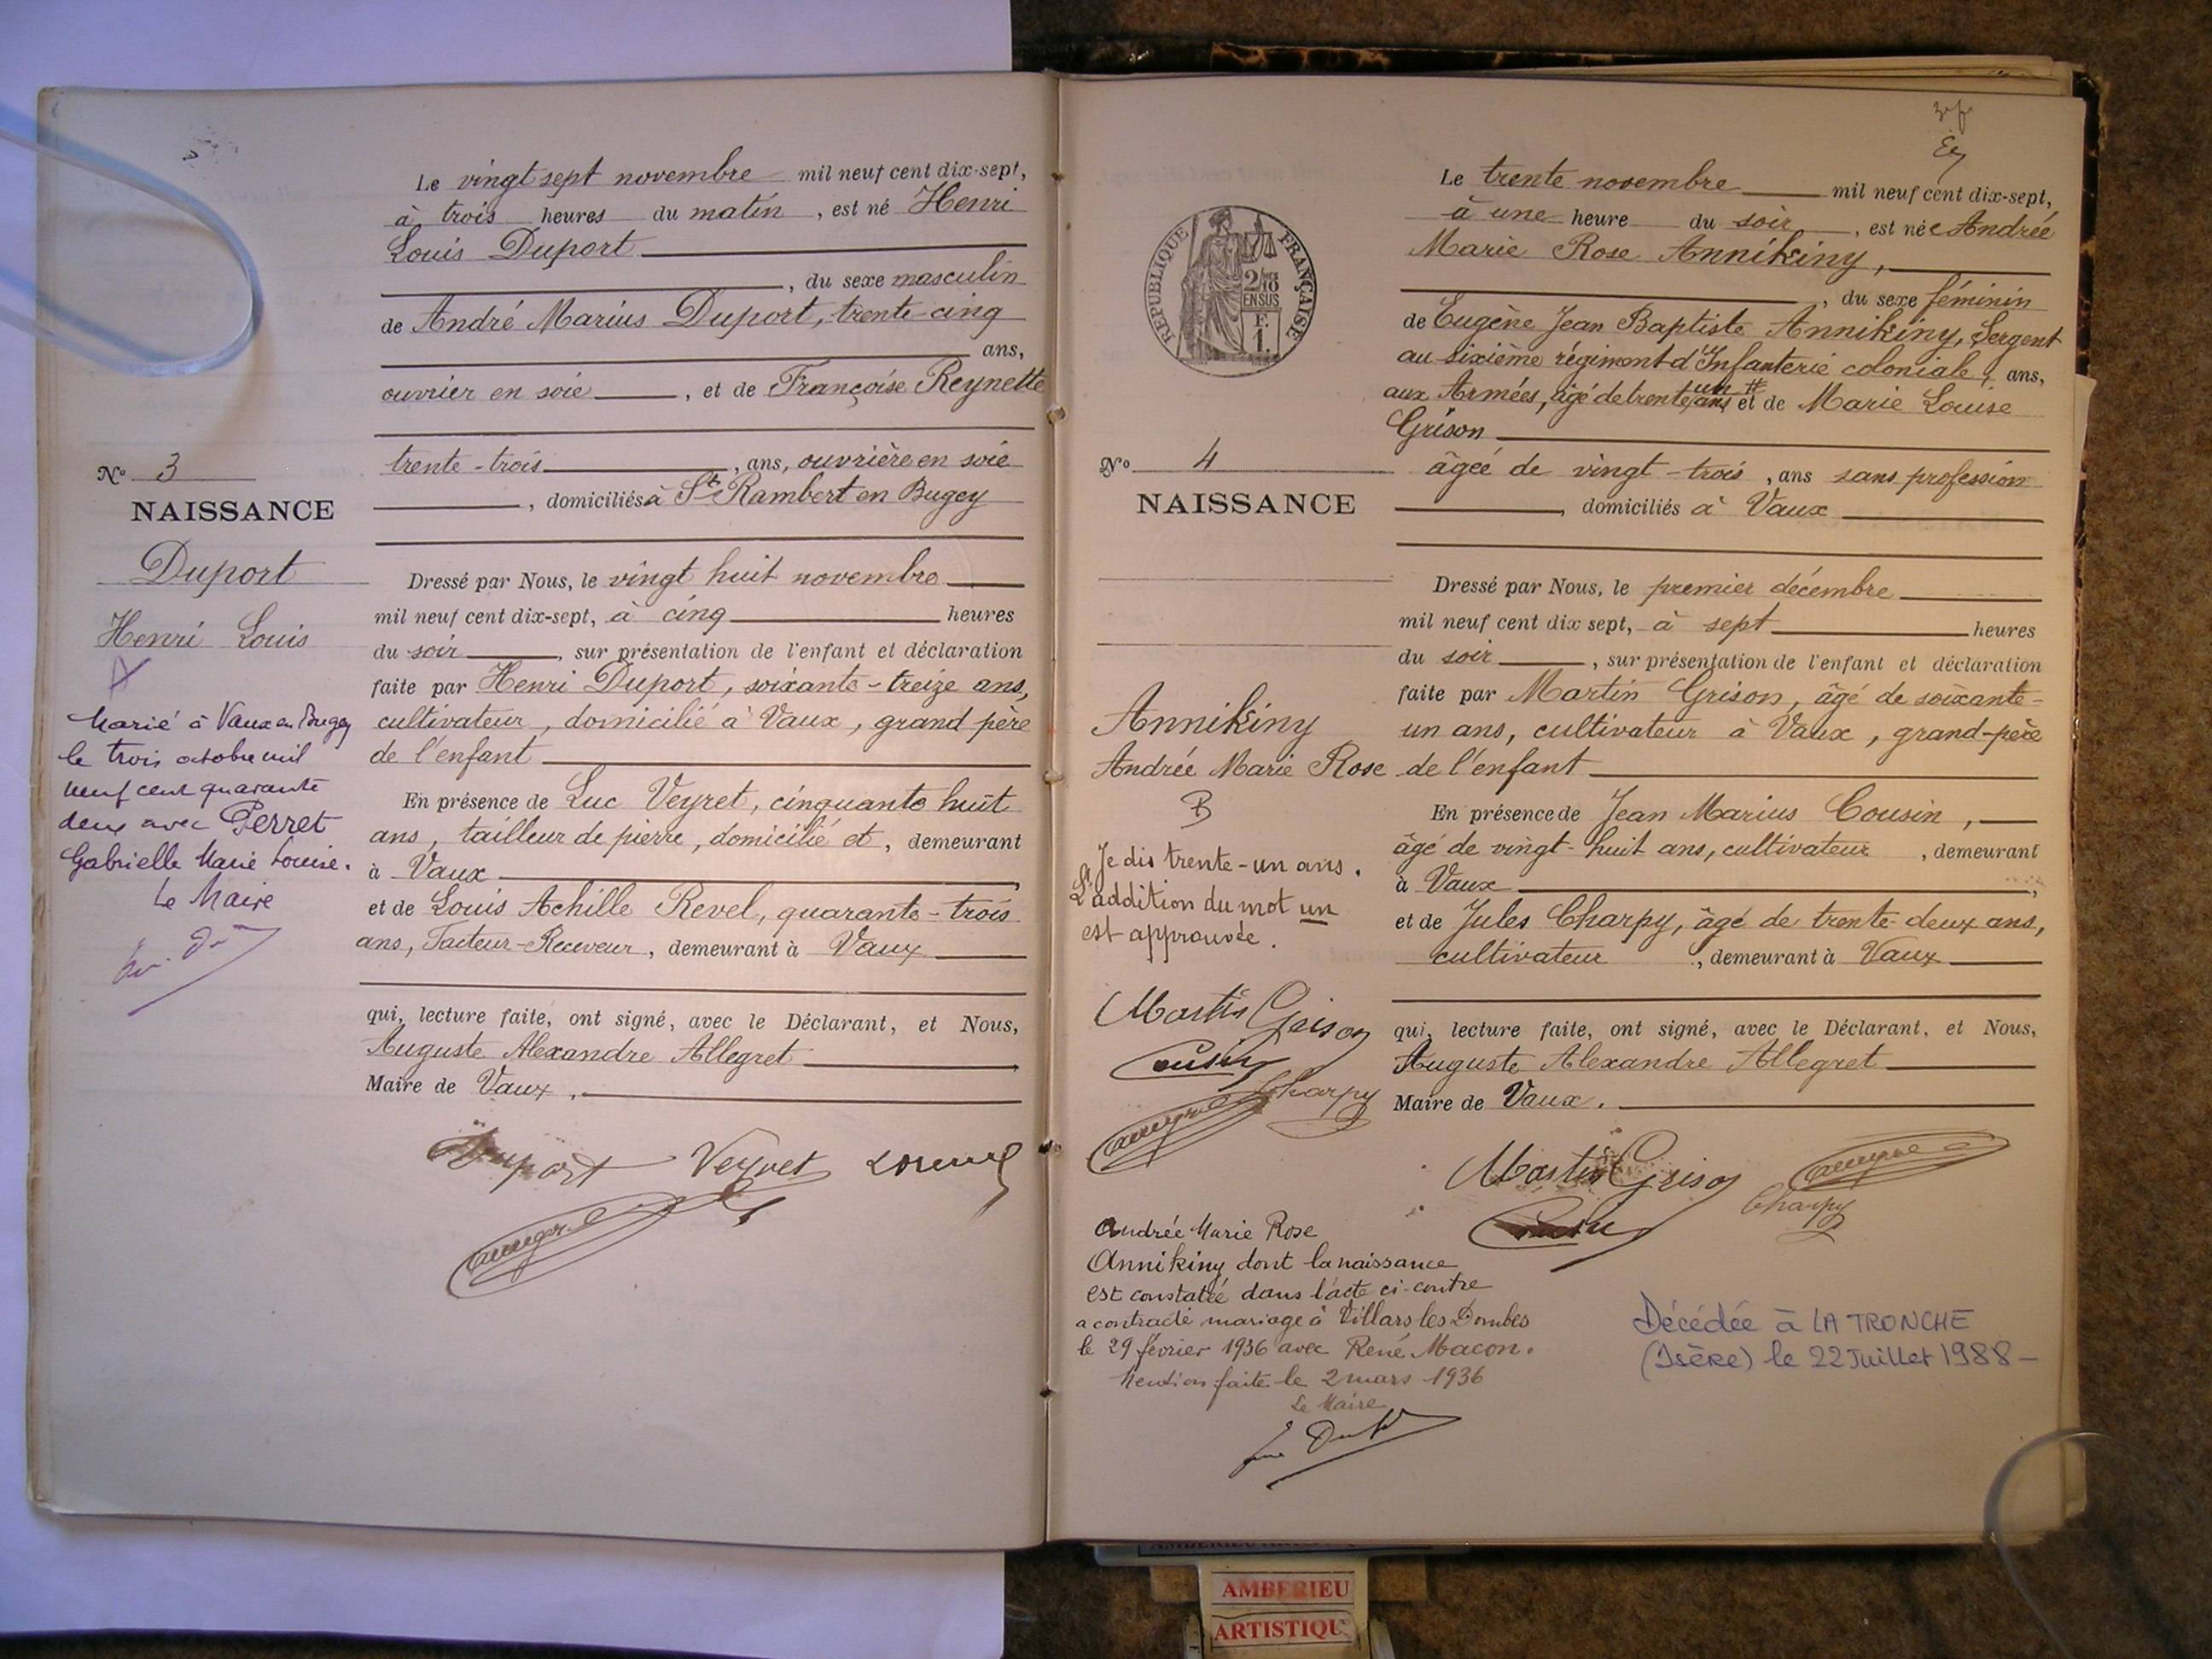 Le vingt sept novembre mil neuf cent dix-sept,
à trois heures du matin, est né Henri
Louis Duport
, du sexe masculin
de André Marius Duport, trente-cinq
ans,
ouvrier en soie, et de Françoise Reynette
trente-trois, ans, ouvrière en soie
, domiciliés à St Rambert en Bugey
Dressé par Nous, le vingt huit novembre
mil neuf cent dix-sept, à cinq heures
du soir, sur présentation de l'enfant et déclaration
faite par Henri Duport, soixante-treize ans,
cultivateur, domicilié à Vaux, grand père
de l'enfant
En présence de Luc Veyret, cinquante huit
ans, tailleur de pierre, domicilié et, demeurant
à Vaux,
et de Louis Achille Revel, quarante-trois
ans, Facteur-Receveur, demeurant à Vaux
qui, lecture faite, ont signé, avec le Déclarant, et Nous,
Auguste Alexandre Allegret
Maire de Vaux,
Duport Veyret
No 3
NAISSANCE
Duport
Henri Louis
Marié à Vaux en Bugey
le trois octobre mil
neuf cent quarante
deux avec Perret
Gabrielle Marie Louise.
Le Maire
Le trente novembre mil neuf cent dix-sept,
à une heure du soir, est née Andrée
Marie Rose Annikiny,
, du sexe féminin
de Eugène Jean Baptiste Annikiny, Sergent
au sixième régiment d'Infanterie coloniale, ans,
aux Armées, âgé de trente un ans et de Marie Louise
Grison
âgée de vingt-trois, ans sans profession
, domiciliés à Vaux
Dressé par Nous, le premier décembre
mil neuf cent dix sept, à sept heures
du soir, sur présentation de l'enfant et déclaration
faite par Martin Grison, âgé de soixante-
un ans, cultivateur à Vaux, grand-père
de l'enfant
En présence de Jean Marius Cousin,
âgé de vingt-huit ans, cultivateur, demeurant
à Vaux,
et de Jules Charpy, âgé de trente-deux ans,
cultivateur, demeurant à Vaux
qui, lecture faite, ont signé, avec le Déclarant, et Nous,
Auguste Alexandre Allegret
Maire de Vaux.
Martin Grison
Charpy
RÉPUBLIQUE FRANÇAISE
2/10
EN SUS
F.
1.
No 4
NAISSANCE
Annikiny
Andrée Marie Rose
B
Je dis trente-un ans.
L'addition du mot un
est approuvée.
Martin Grison
Cousin
Charpy
Andrée Marie Rose
Annikiny dont la naissance
est constatée dans l'acte ci-contre
a contracté mariage à Villars les Dombes
le 29 février 1936 avec René Macon.
Mention faite le 2 mars 1936
Le Maire
Décédée à LA TRONCHE
(Isère) le 22 Juillet 1988 -
AMBERIEU
ARTISTIQU